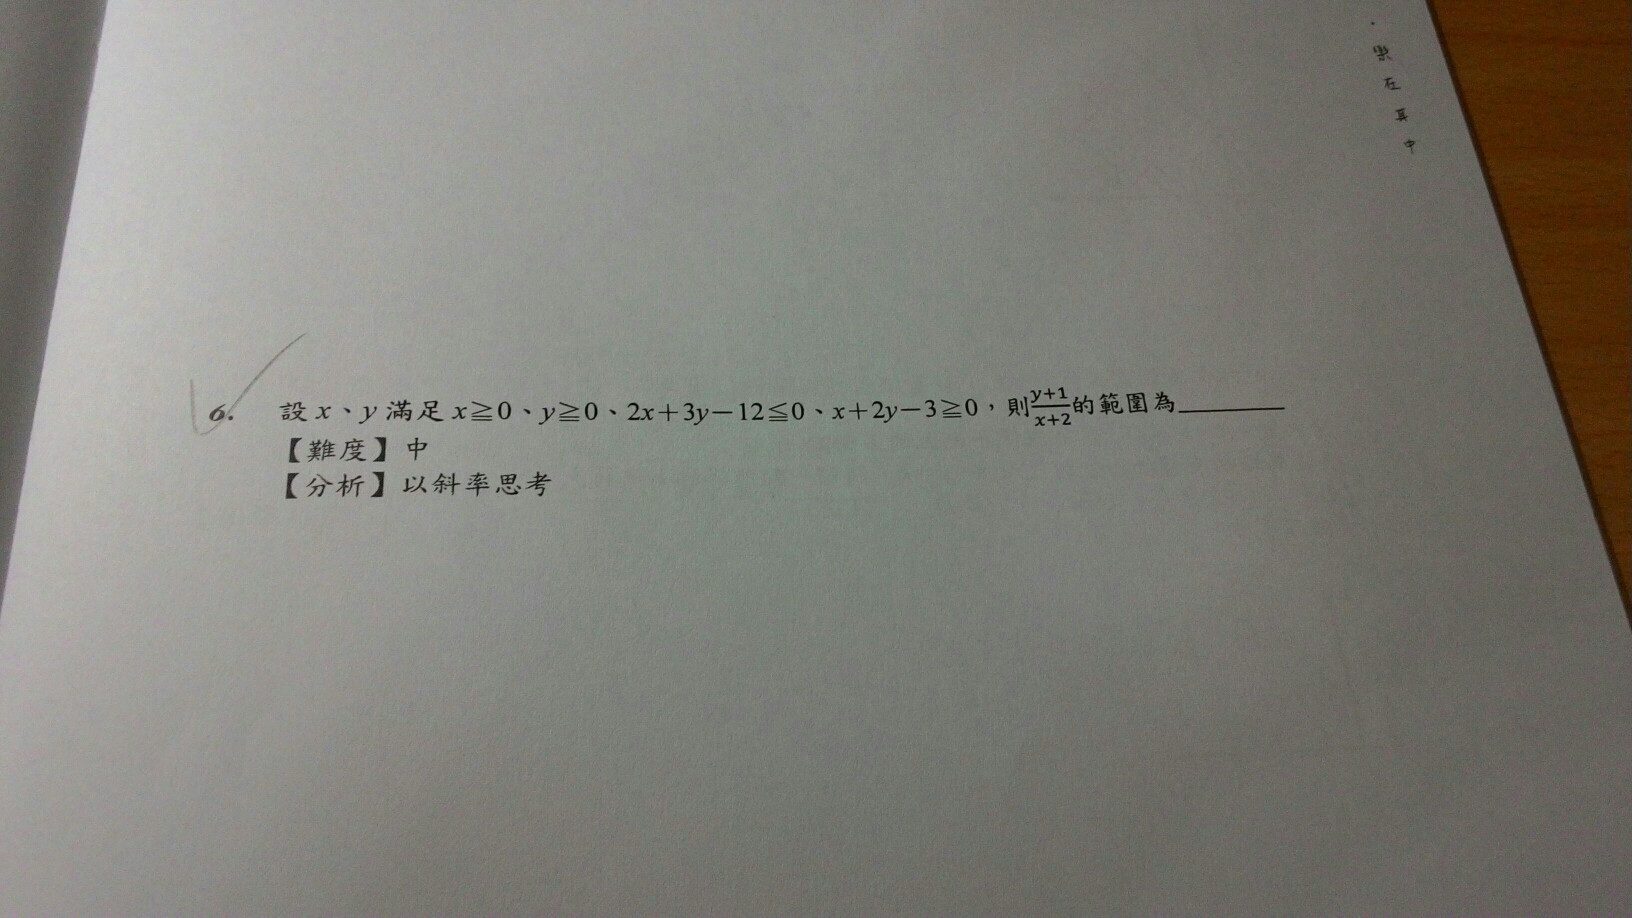 ·樂在其中
6. 設 x、y 滿足 x≧0、y≧0、2x+3y−12≦0、x+2y−3≧0，則\frac{y+1}{x+2}的範圍為________
【難度】中
【分析】以斜率思考